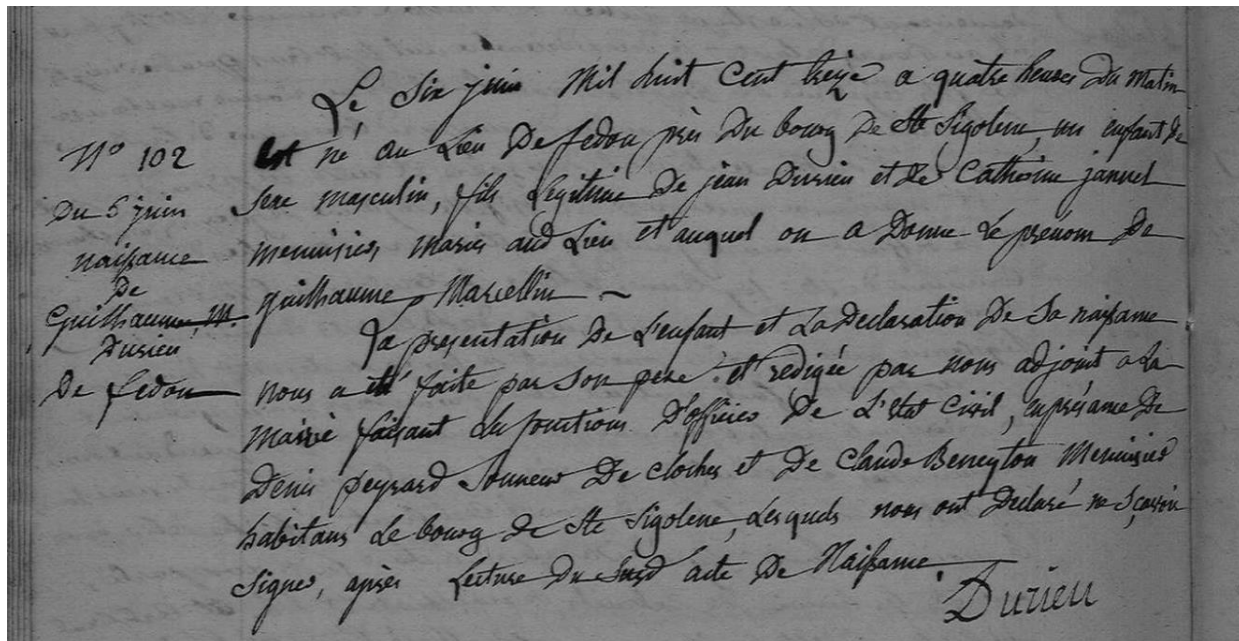 Le Six juin Mil huit Cent treize a quatre heures Du Matin
N° 102
est né au Lieu De fedou près Du bourg De Ste Sigolene, un enfant de
Du 6 juin
Sexe masculin, fils Legitime De jean Durieu et de Catherine jannel
naissance
menuisier, mariés aud Lieu et auquel on a Donné Le prénom De
De
Guilhaume, M.
guilhaume Marcellin
Durieu
La presentation De L'enfant et La Declaration De Sa naissance
De fedou
nous a été faite par Son pere et redigée par nous adjoint a La
Mairie faisant les fonctions D'officier De L'Etat Civil, en présance De
Denis peyrard Sonneur De cloches et De Claude Beneyton Menuisier
habitans Le bourg de Ste Sigolene, Lesquels nous ont Declaré ne Sçavoir
Signer, après Lecture Du Susd acte De Naissance.
Durieu